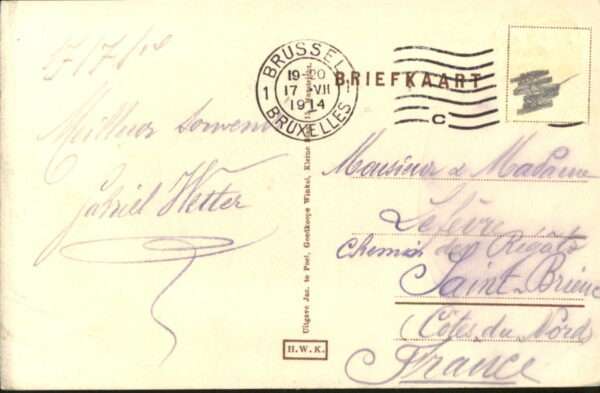 17/7/14
Meilleur souvenir
Gabriel Wetter
BRUSSEL
1 19-20 1
17 VII
1914
BRUXELLES
BRIEFKAART
C
Monsieur & Madame
Lefèvre
Chemin des Régats
Saint-Brieuc
(Côtes du Nord)
France
Uitgave Jac. te Poel, Goedkoope Winkel, Kleine
H.W.K.